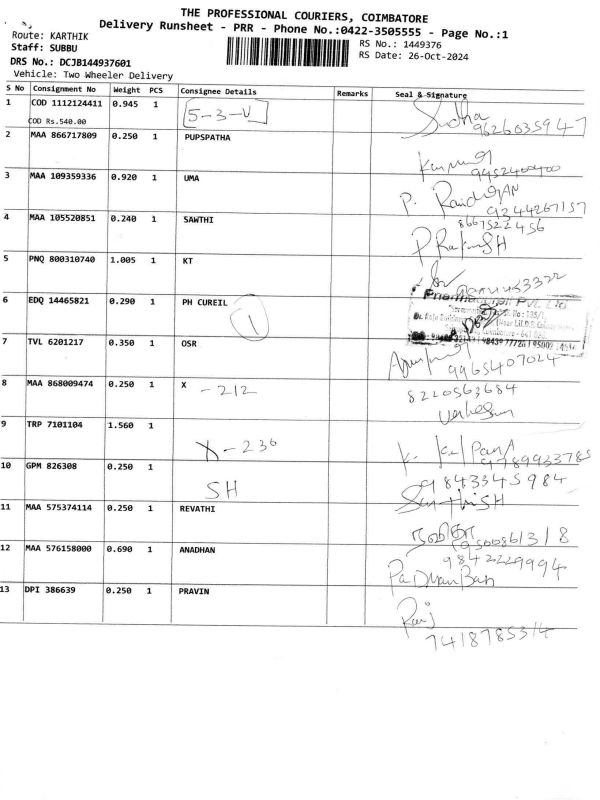 THE PROFESSIONAL COURIERS, COIMBATORE
Delivery Runsheet - PRR - Phone No.:0422-3505555 - Page No.:1
Route: KARTHIK
Staff: SUBBU
RS No.: 1449376
RS Date: 26-Oct-2024
DRS No.: DCJB144937601
Vehicle: Two Wheeler Delivery
S No Consignment No Weight PCS Consignee Details Remarks Seal & Signature
1 COD 1112124411 0.945 1 5-3-V Sudha
COD Rs.540.00 9626035947
2 MAA 866717809 0.250 1 PUPSPATHA
9952400400
3 MAA 109359336 0.920 1 UMA P.
9244267157
4 MAA 105520851 0.240 1 SAWTHI 8667522456
5 PNQ 800310740 1.005 1 KT
6 EDQ 14465821 0.290 1 PH CUREIL
1
7 TVL 6201217 0.350 1 OSR
9965407024
8 MAA 868009474 0.250 1 X - 212 8220563684
9 TRP 7101104 1.560 1
X - 236 K. KalPanA
9789933785
10 GPM 826308 0.250 1 SH 9843345984
SanthiSH
11 MAA 575374114 0.250 1 REVATHI
9500861318
12 MAA 576158000 0.690 1 ANADHAN 9842229994
13 DPI 386639 0.250 1 PRAVIN Raj
7418785314